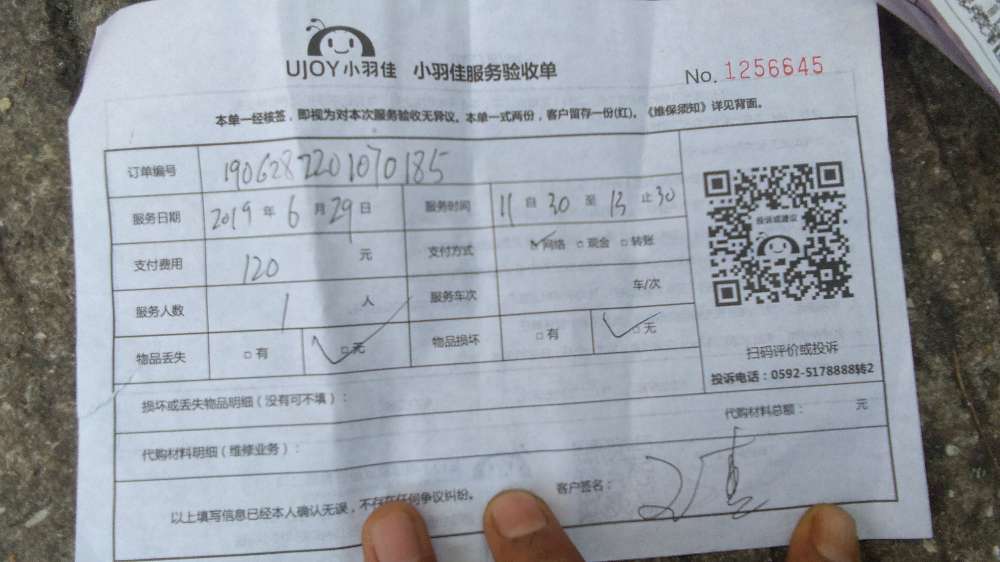 UJOY小羽佳 小羽佳服务验收单 No. 1256645
本单一经核签，即视为对本次服务验收无异议。本单一式两份，客户留存一份(红)。《维保须知》详见背面。
订单编号 1906282201070185
服务日期 2019 年 6 月 29 日 服务时间 11 自 30 至 13 止 30
投诉或建议
支付费用 120 元 支付方式 ☑网络 □现金 □转账
服务人数 1 人 服务车次 车/次
物品丢失 □有 ☑无 物品损坏 □有 ☑无
扫码评价或投诉
投诉电话：0592-5178888转2
损坏或丢失物品明细（没有可不填）：
代购材料明细（维修业务）： 代购材料总额： 元
以上填写信息已经本人确认无误，不存在任何争议纠纷。 客户签名：